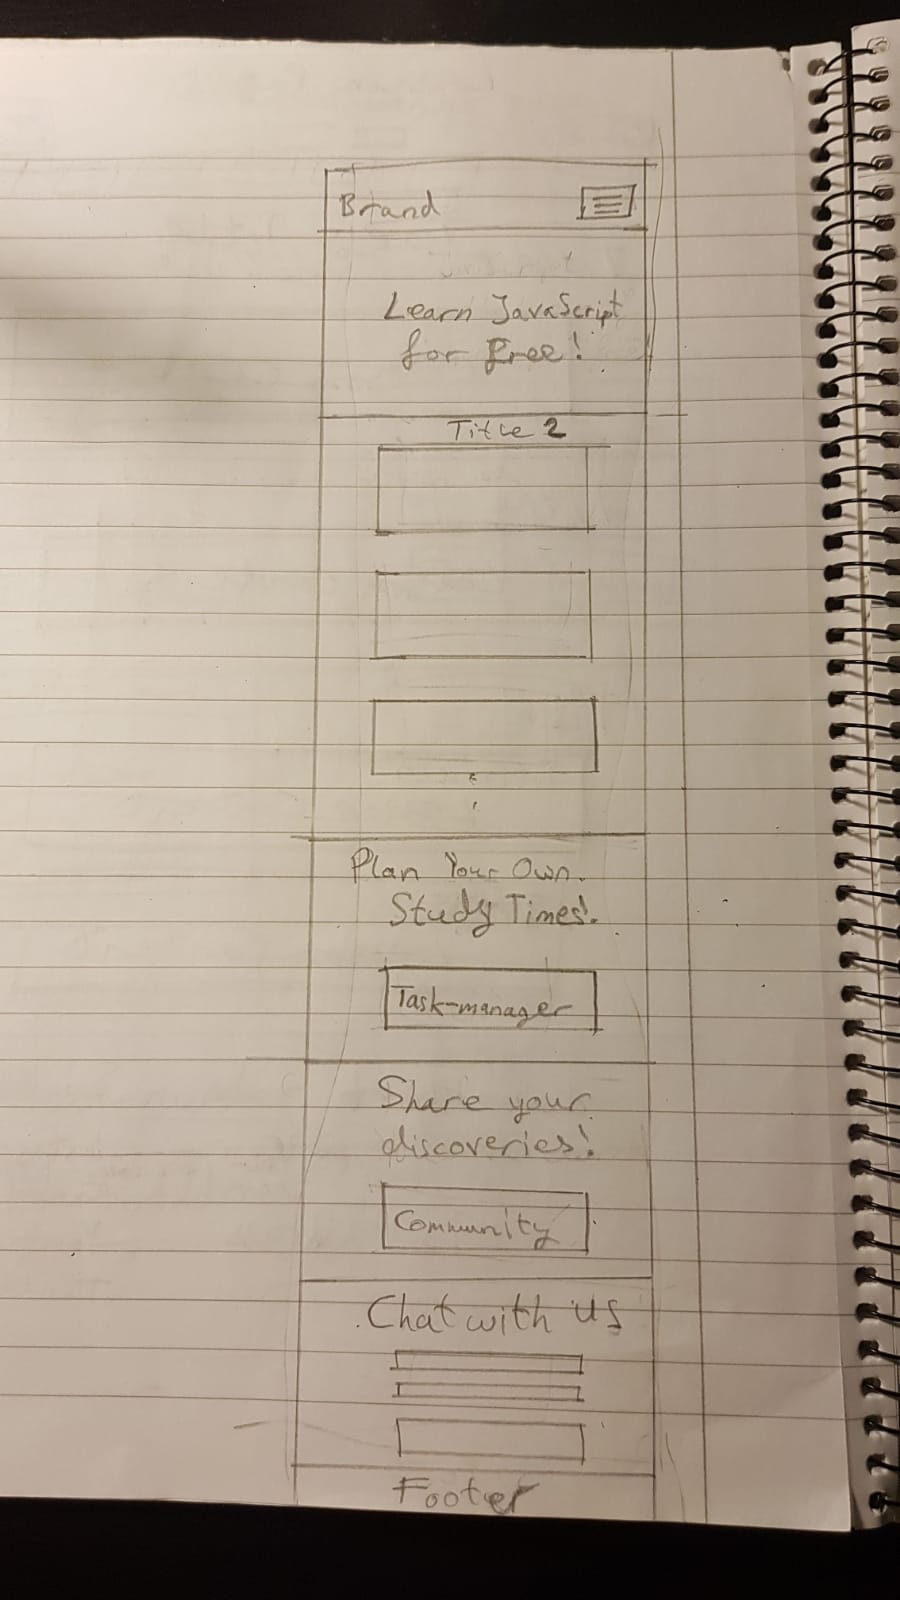 Brand
Learn JavaScript
for Free!
Title 2
Plan Your Own
Study Times!
Task-manager
Share your
discoveries!
Community
Chat with us
Footer